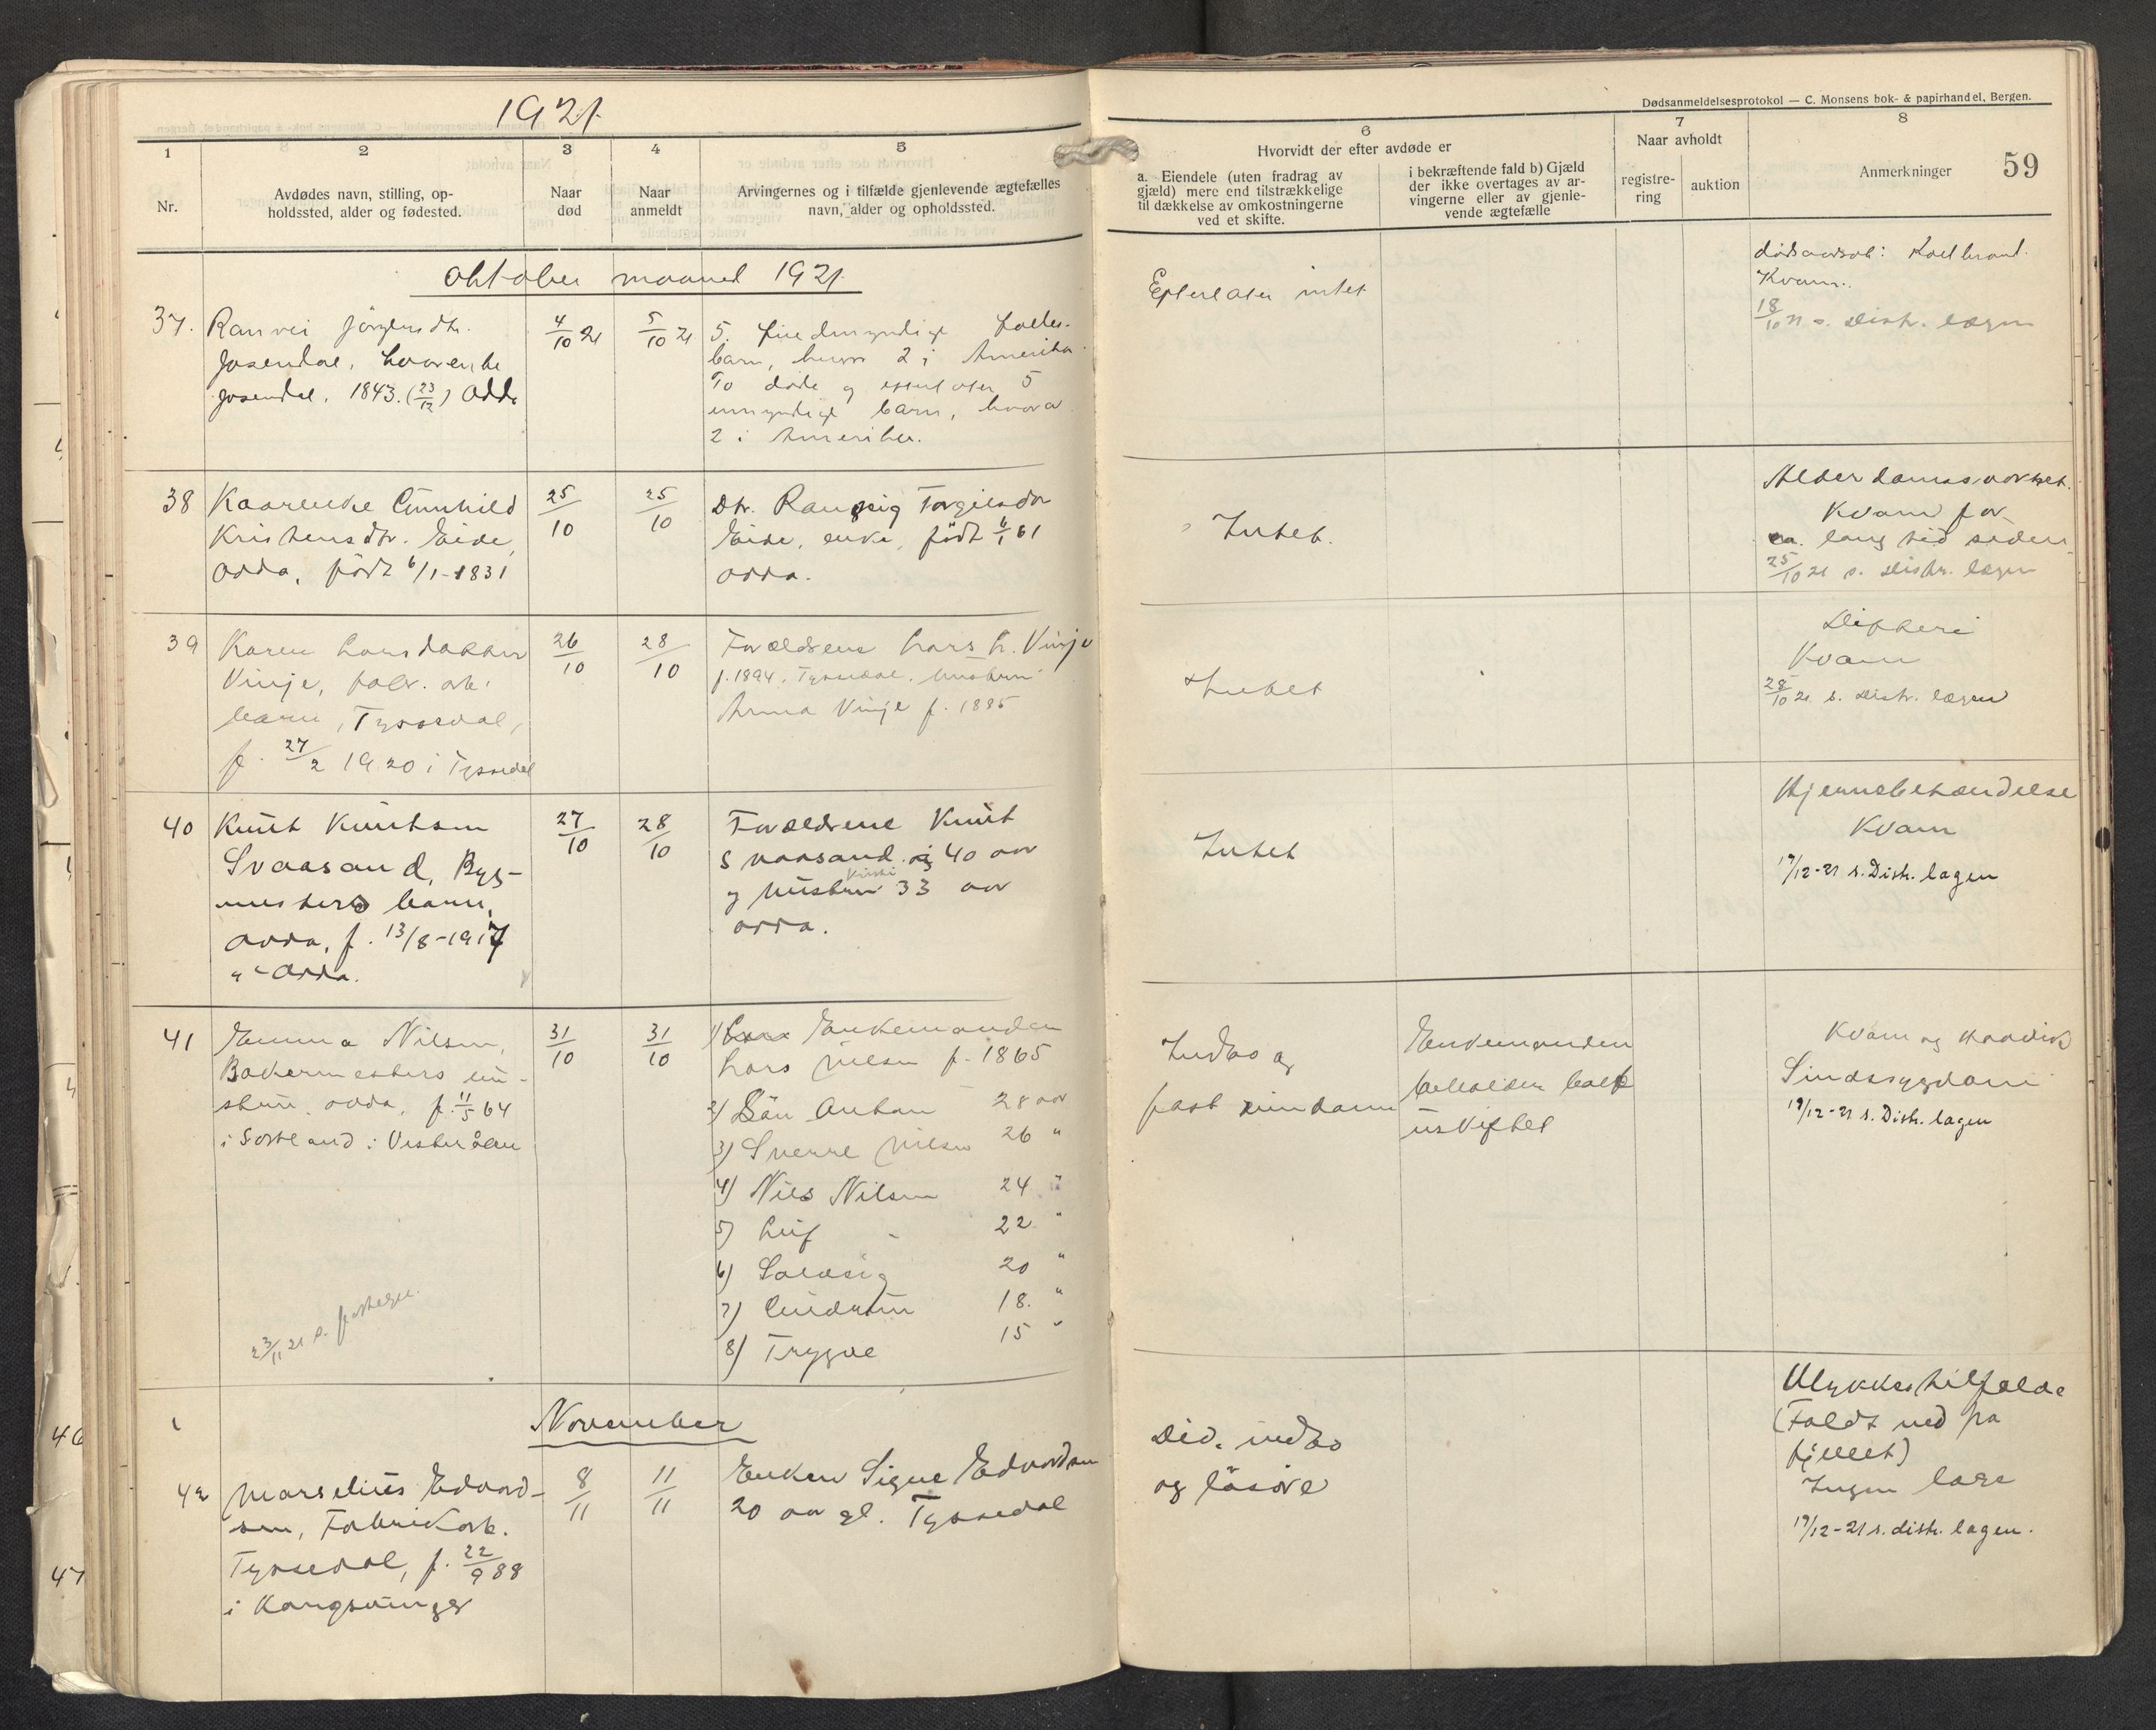 1921.
Dødsanmeldelsesprotokol — C. Monsens bok- & papirhandel, Bergen.
59
1
2
3
4
5
6
7
8
Nr.
Avdødes navn, stilling, op-
holdssted, alder og fødested.
Naar
død
Naar
anmeldt
Arvingernes og i tilfælde gjenlevende ægtefælles
navn, alder og opholdssted.
Hvorvidt der efter avdøde er
a. Eiendele (uten fradrag av
gjæld) mere end tilstrækkelige
til dækkelse av omkostningerne
ved et skifte.
i bekræftende fald b) Gjæld
der ikke overtages av ar-
vingerne eller av gjenle-
vende ægtefælle
Naar avholdt
registre-
ring
auktion
Anmerkninger
Oktober maaned 1921.
37.
Ranvei Jørgensdtr.
Jøsendal, kaarenke
Jøsendal. 1843. (23/12) Odda
4/10 21
5/10 21
5 fuldmyndige fælles-
barn, hvorav 2 i Amerika
To døde og efterlater 5
umyndige barn, hvorav
2 i Amerika.
Efterlater intet
dødsaarsak: Koldbrand.
Kvam.
18/10 21 s. Distr. lægen
38
Kaarenke Gunhild
Kristensdtr. Eide,
Odda, født 6/1-1831
25/10
25/10
Dtr. Rangsig Torgilsdtr
Eide, enke, født 6/1 61
Odda.
Intet.
Alderdomssvakhet.
Kvam for
ca. lang tid siden
25/10 21 s. Distr. lægen
39
Karen Larsdatter
Vinje, fabr. arb.
barn, Tyssedal,
f. 27/2 1920 i Tyssedal
26/10
28/10
Forældrene Lars L. Vinje
f. 1894, Tyssedal, hustru
Anna Vinje f. 1895
Intet
Difteri
Kvam
28/10 21 s. Distr. lægen
40
Knut Knutsen
Svaasand, Byg-
mesters barn,
Odda, f. 13/8-1917
i Odda.
27/10
28/10
Forældrene Knut
Svaasand og 40 aar
og hustru 33 aar
Odda.
Intet
Hjernebetændelse
Kvam
19/12-21 s. Distr. lægen
41
Emma Nilsen,
Bakermesters hu-
stru, Odda, f. 11/5 64
i Sortland i Vesterålen
31/10
31/10
1) Enkemanden
Lars Nilsen f. 1865
2) Søn Anton 28 aar
3) Sverre Nilsen 26 "
4) Nils Nilsen 24 "
5) Leif - 22 "
6) Solveig 20 "
7) Gudrun 18. "
8) Trygve 15 "
Indbo og
fast eiendom
Enkemanden
beholder boet
uskiftet
Kvam og Haavik
Sindssygdom
19/12-21 s. Distr. lægen
23/11 21 s.
November
42
Marselius Edvard-
sen, Fabrikarb.
Tyssedal, f. 22/9 88
i Kongsvinger
8/11
11/11
Enken Signe Edvardsen
20 aar gl. Tyssedal
Lid. indbo
og løsøre
Ulykkestilfælde
(Faldt ned fra
fjellet)
Ingen læge
19/12-21 s. distr. lægen.
46
47